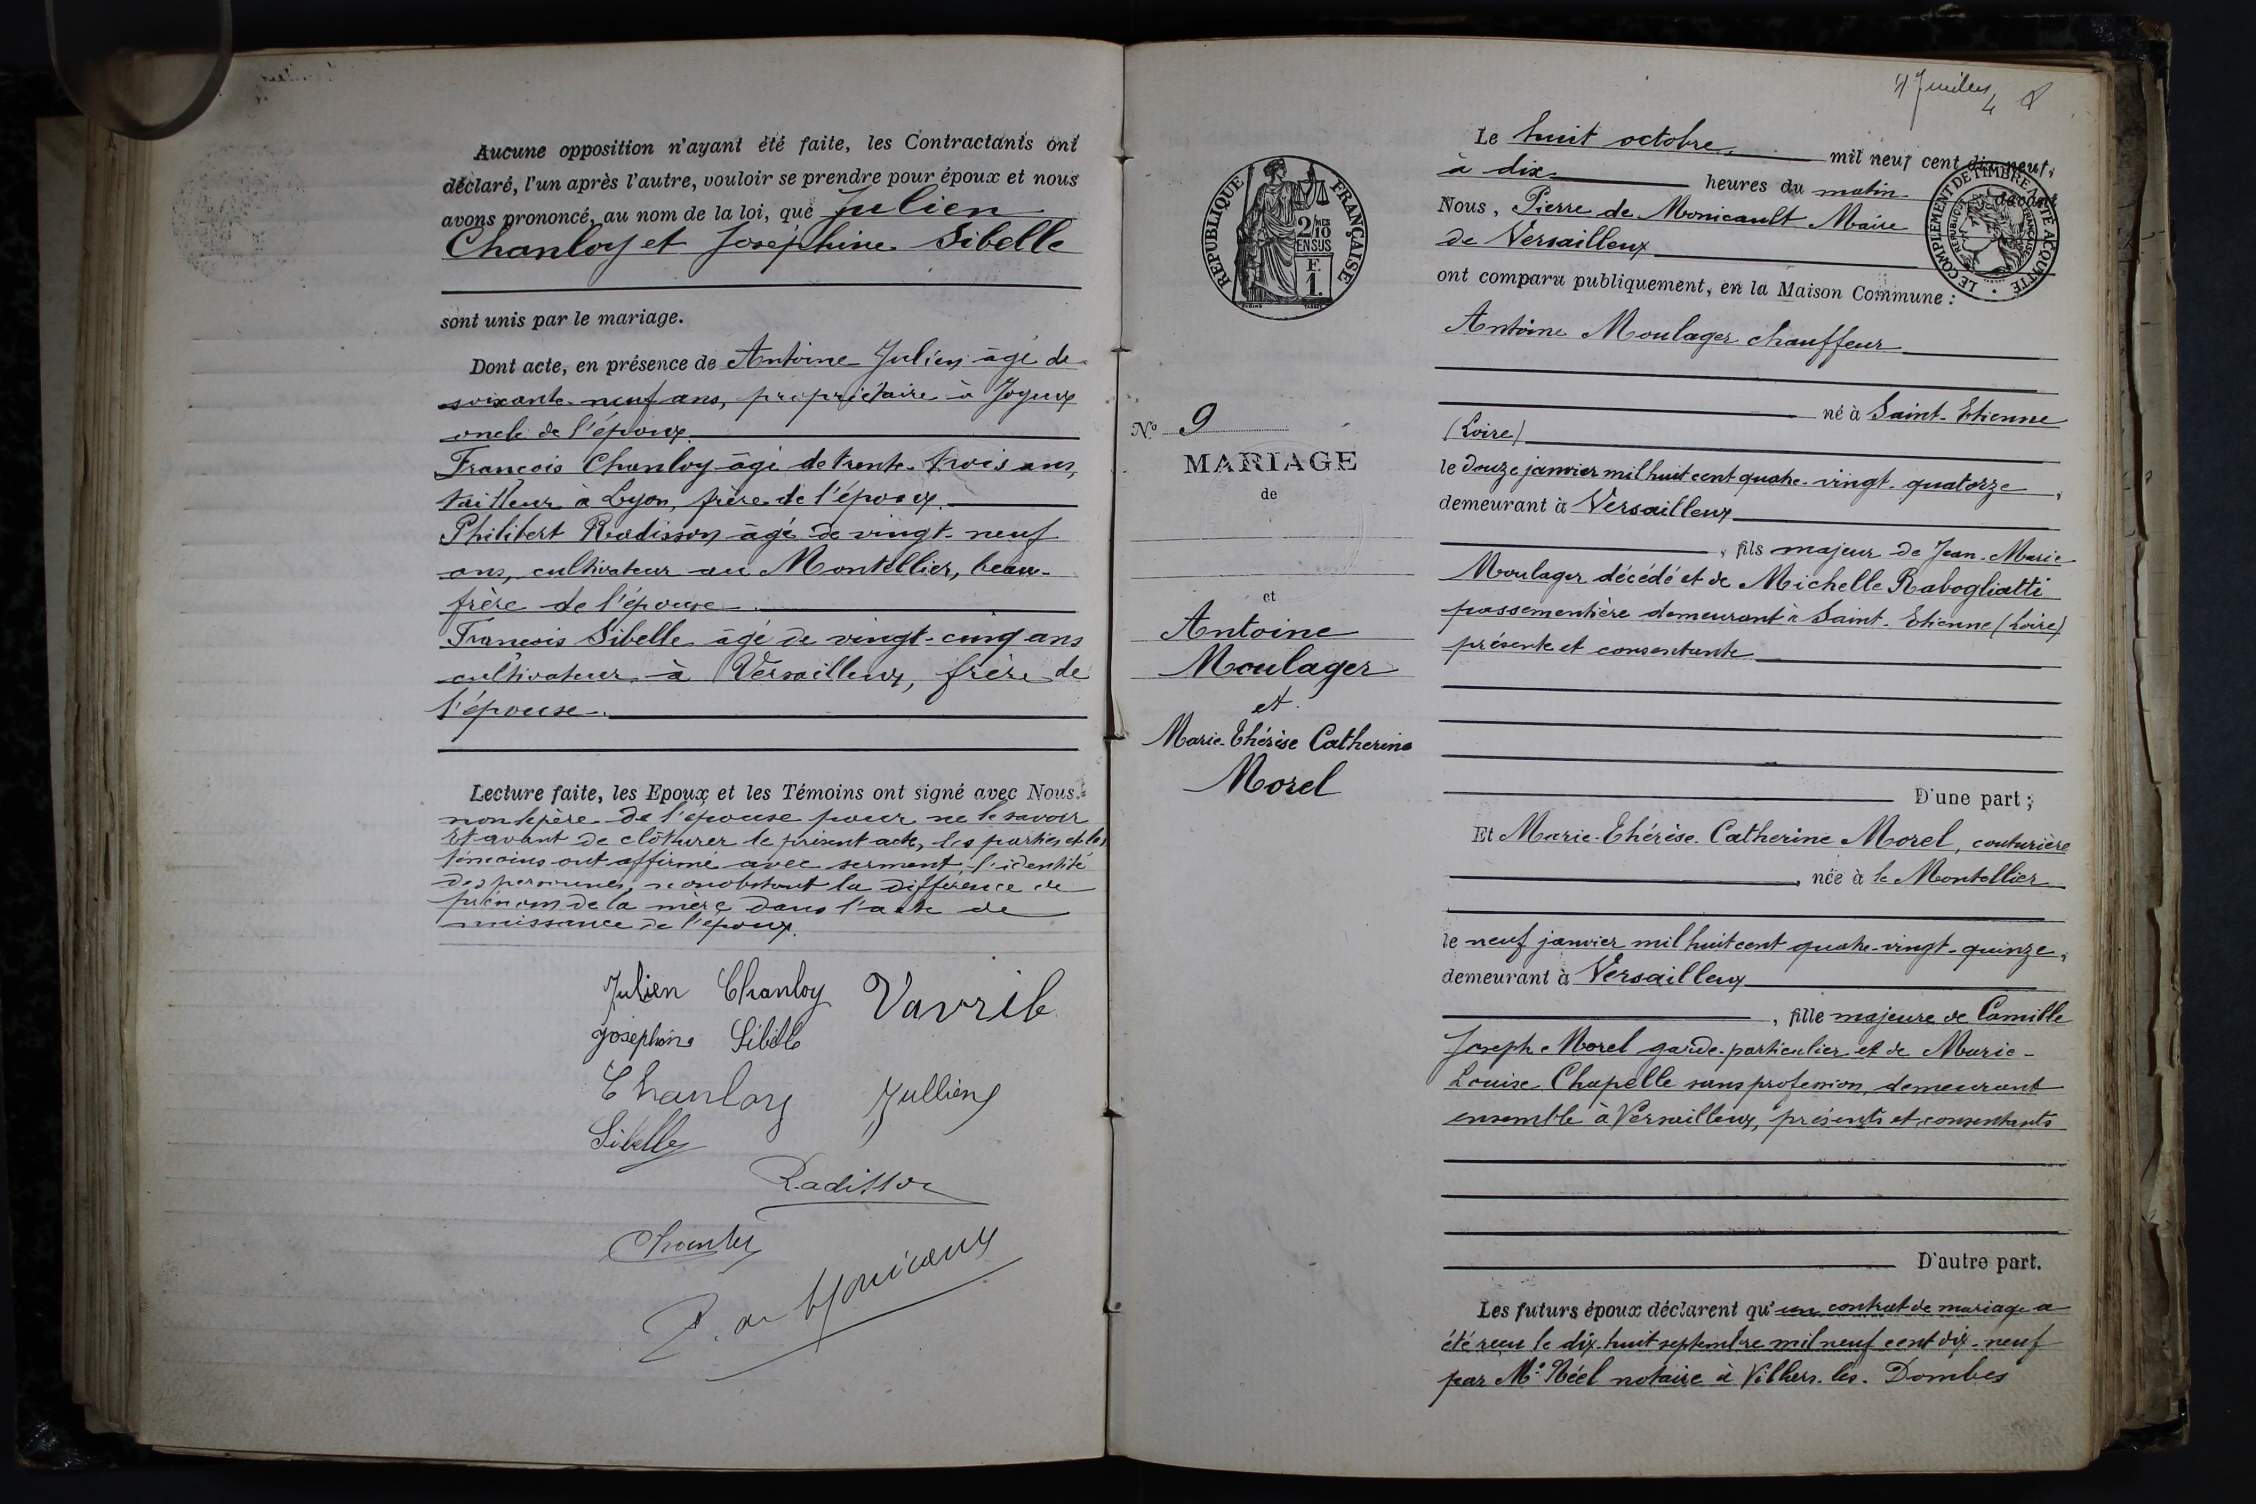 Aucune opposition n'ayant été faite, les Contractants ont
déclaré, l'un après l'autre, vouloir se prendre pour époux et nous
avons prononcé, au nom de la loi, que Julien
Chanloy et Joséphine Sibelle
sont unis par le mariage.
Dont acte, en présence de Antoine Julien âgé de
soixante-neuf ans, propriétaire à Joyeux
oncle de l'époux
François Chanloy âgé de trente-trois ans,
tailleur à Lyon, frère de l'époux.
Philibert Radisson âgé de vingt-neuf
ans, cultivateur au Montellier, beau-
frère de l'épouse.
François Sibelle âgé de vingt-cinq ans
cultivateur à Versailleux, frère de
l'épouse.
Lecture faite, les Epoux et les Témoins ont signé avec Nous.
non le père de l'épouse pour ne le savoir
Et avant de clôturer le présent acte, les parties et les
témoins ont affirmé avec serment, l'identité
des personnes, nonobstant la différence de
prénom de la mère dans l'acte de
naissance de l'époux.
Julien Chanloy Vavrile
Joséphine Sibelle
Chanloy Jullien
Sibelle
Radisson
Chanloy
P. de Monicault
REPUBLIQUE FRANÇAISE
2/10 MES
EN SUS
F.
1.
N° 9
MARIAGE
de
et
Antoine
Moulager
et
Marie-Thérèse Catherine
Morel
Le huit octobre mil neuf cent dix-neuf,
à dix heures du matin devant
Nous, Pierre de Monicault Maire
de Versailleux
LE COMPLÉMENT DE TIMBRE A ÉTÉ ACQUITTÉ
ont comparu publiquement, en la Maison Commune :
Antoine Moulager chauffeur
né à Saint-Etienne
(Loire)
le douze janvier mil huit cent quatre-vingt-quatorze,
demeurant à Versailleux
, fils majeur de Jean-Marie
Moulager décédé et de Michelle Rabogliatti
passementière demeurant à Saint-Etienne (Loire)
présente et consentante
D'une part ;
Et Marie-Thérèse-Catherine Morel, couturière
, née à le Montellier
le neuf janvier mil huit cent quatre-vingt-quinze,
demeurant à Versailleux
, fille majeure de Camille
Joseph Morel garde-particulier et de Marie-
Louise Chapelle sans profession, demeurant
ensemble à Versailleux, présents et consentants
D'autre part.
Les futurs époux déclarent qu'un contrat de mariage a
été reçu le dix-huit septembre mil neuf cent dix-neuf
par Me Néel notaire à Villars-les-Dombes